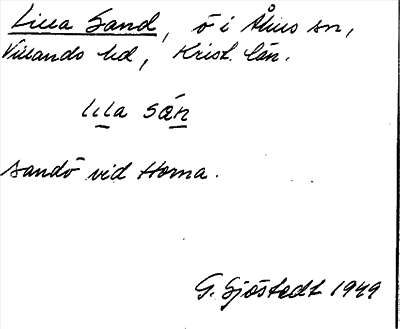 Lilla Sand, ö i Åhus sn,
Villands hd, Krist. län.
lıla sán
sandö vid Horna.
G. Sjöstedt 1949